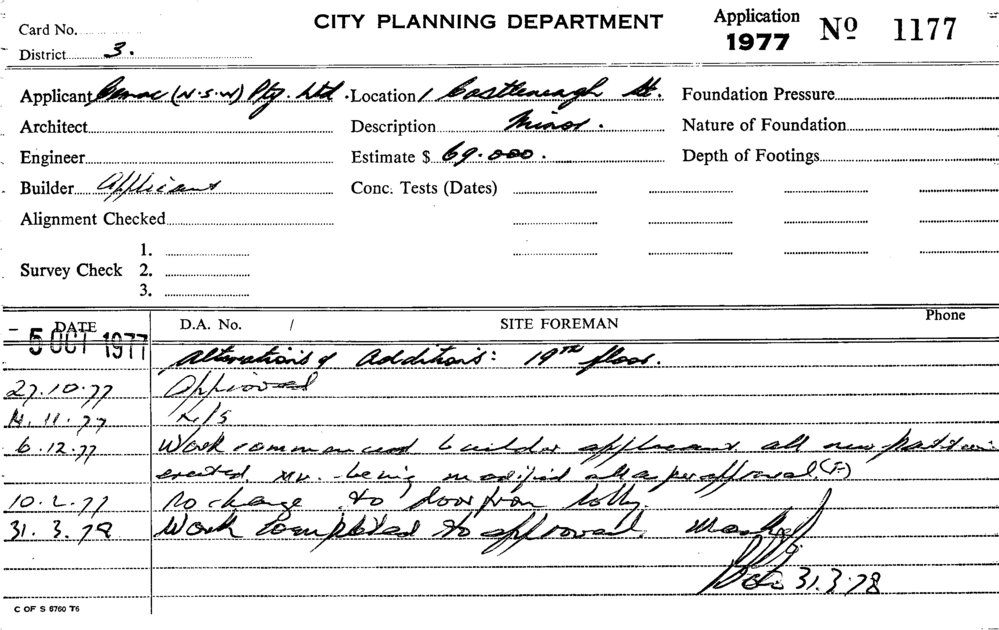 Card No.
CITY PLANNING DEPARTMENT
Application 1977 Nº 1177
District 3.
Applicant (N.S.W) Pty. Ltd. Location 1 Castlereagh St. Foundation Pressure
Architect Description Minor. Nature of Foundation
Engineer Estimate $ 69.000. Depth of Footings
Builder Applicant Conc. Tests (Dates)
Alignment Checked
Survey Check 1.
2.
3.
DATE D.A. No. / SITE FOREMAN Phone
5 OCT 1977
Alterations & Additions: 19TH floor.
27.10.77 Approved
14.11.77 N/S
6.12.77 Work commenced builder applicant all new
erected. being modified all as per approval.
10.2.77 No change to door from lobby.
31.3.78 Work completed to approval.
31.3.78
C OF S 6760 T6